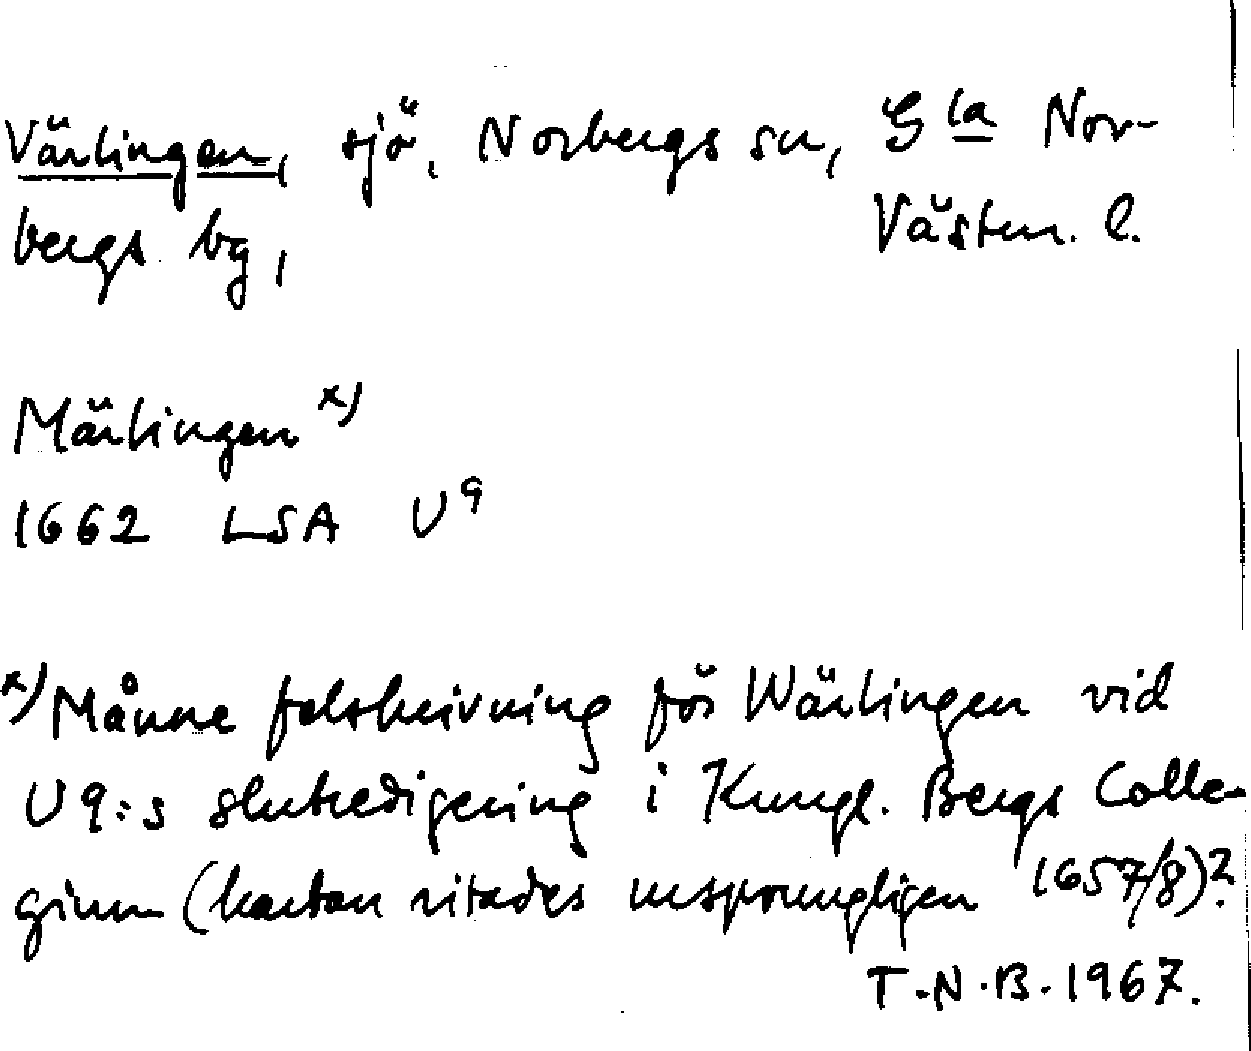 Värlingen, sjö, Norbergs sn, Gla Nor-
bergs bg, Västm. l.
Märlingen x)
1662 LSA U9
x) Månne felskrivning för Wärlingen vid
U9:s slutredigering i Kungl. Bergs Colle-
gium (kartan ritades ursprungligen 1657/8)?
T.N.B. 1967.